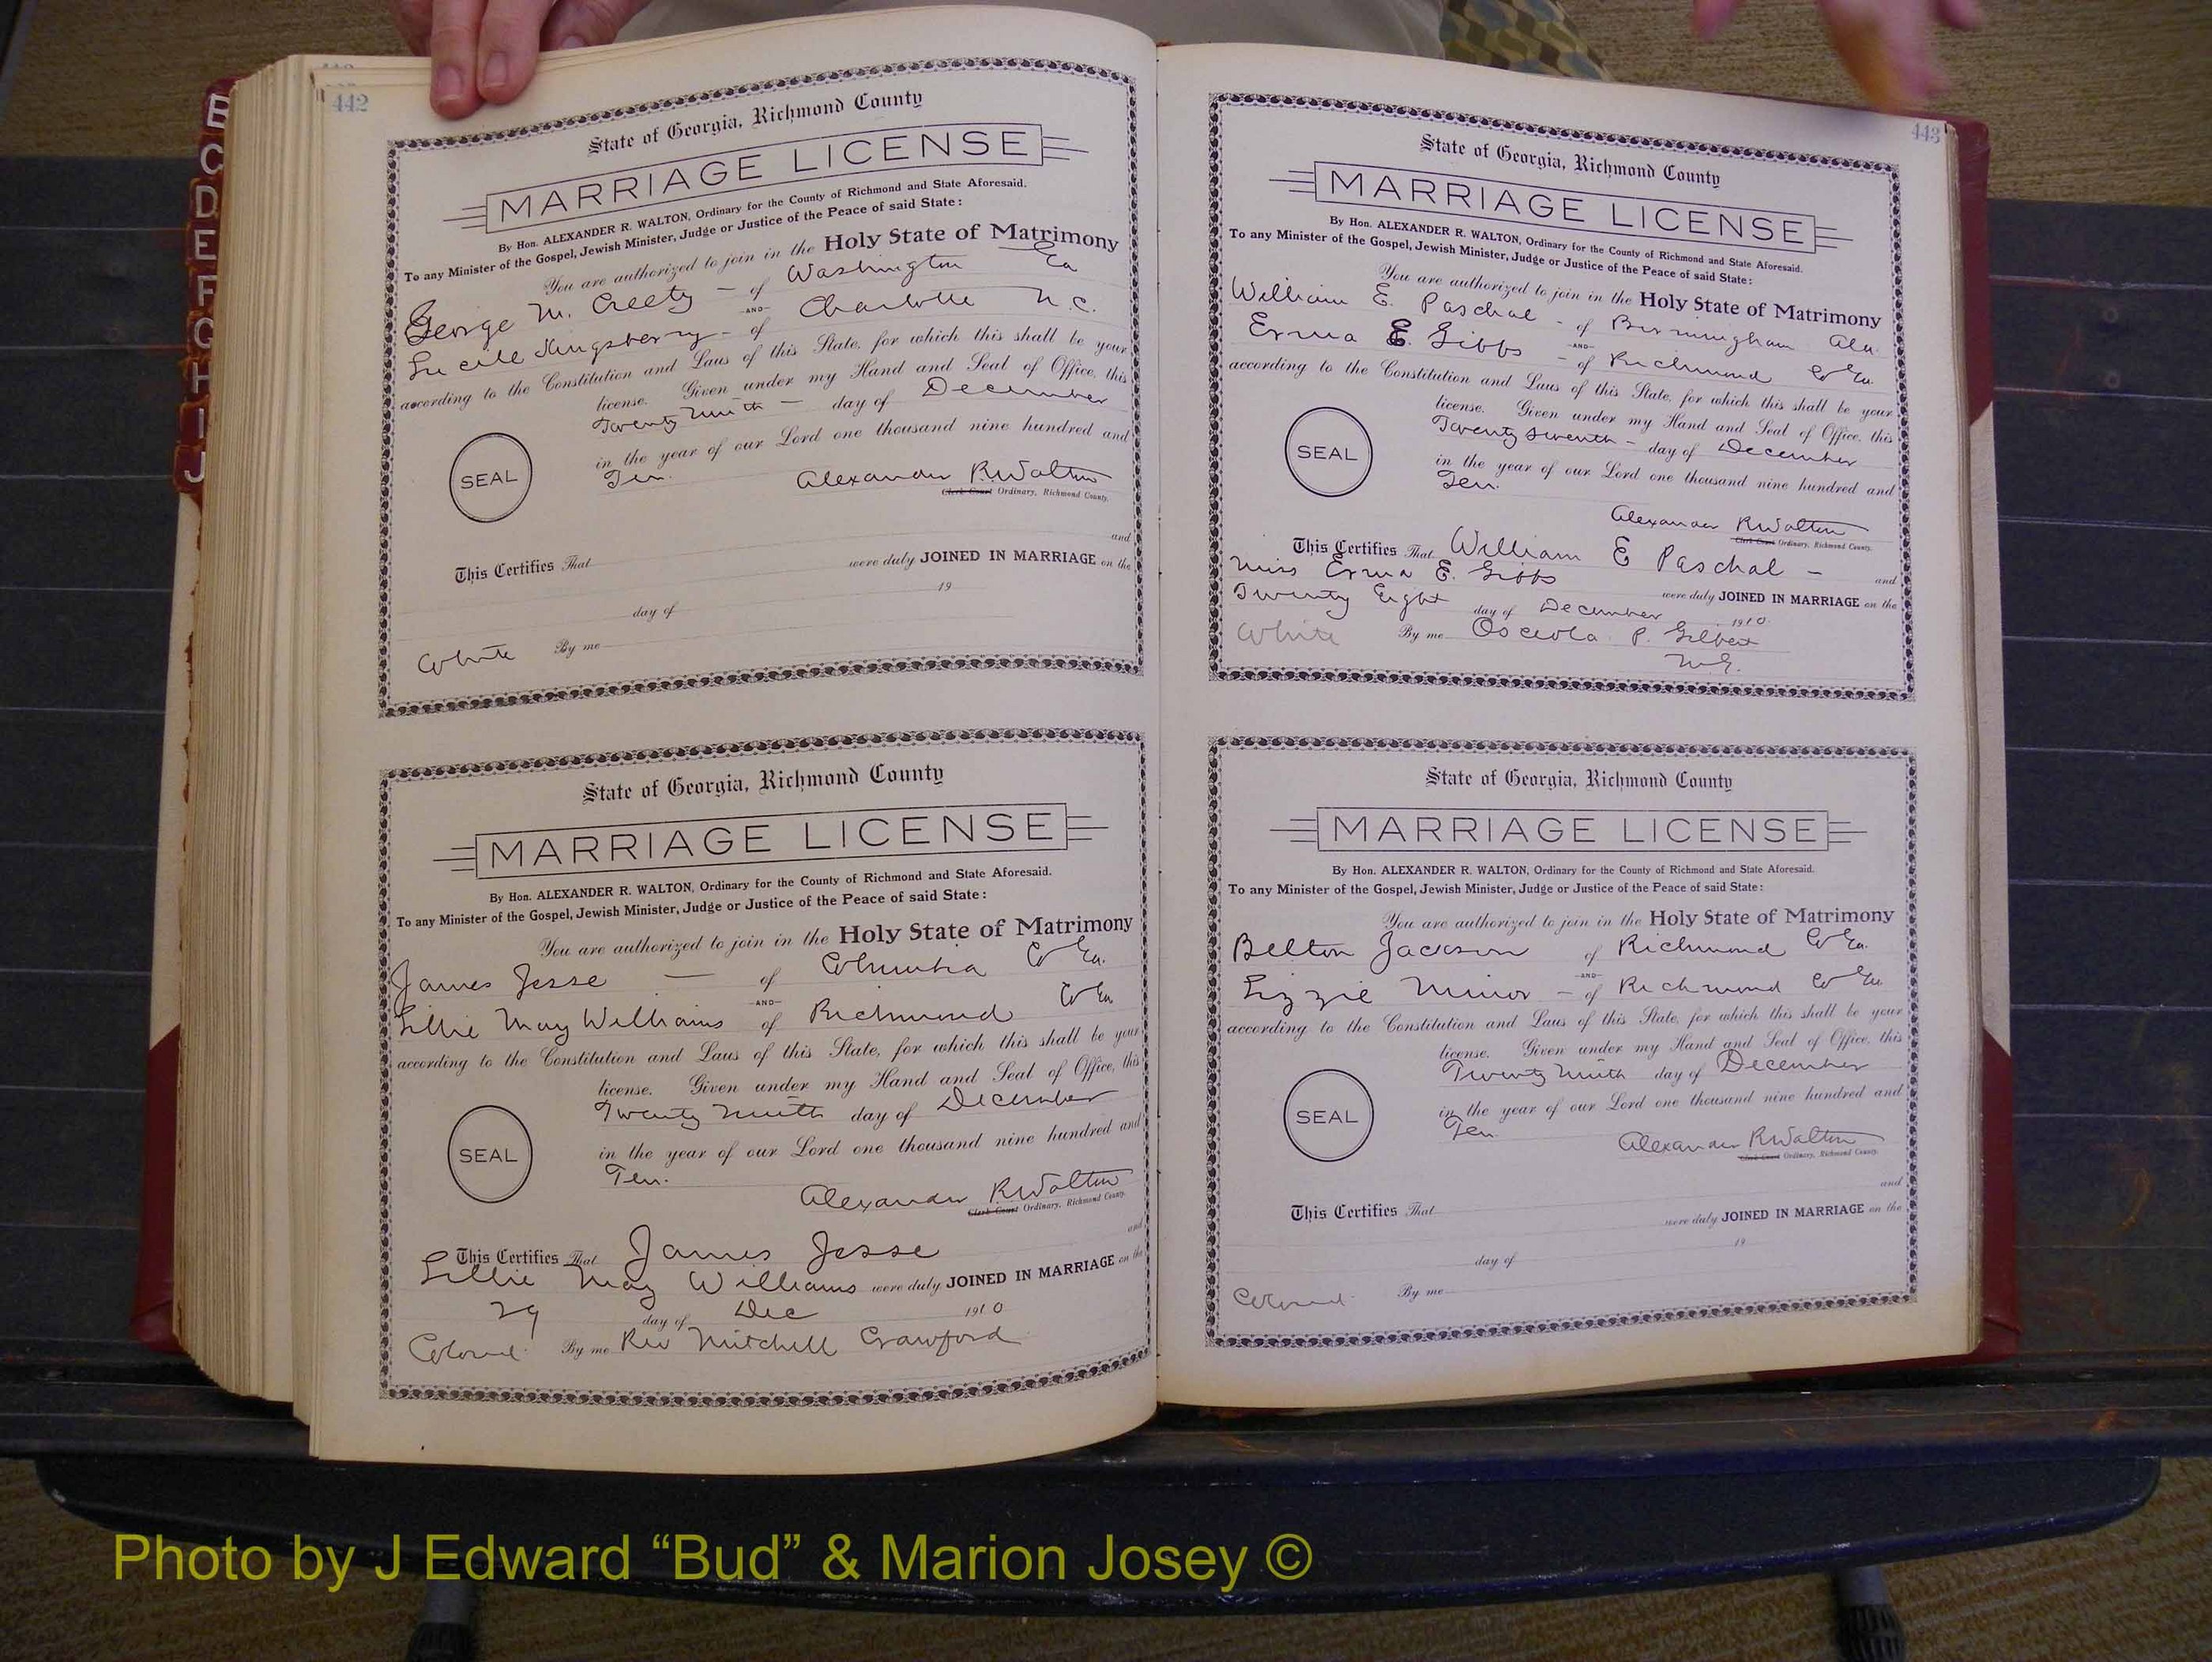 B
C
D
E
F
G
H
I
J
442
State of Georgia, Richmond County
MARRIAGE LICENSE
By Hon. ALEXANDER R. WALTON, Ordinary for the County of Richmond and State Aforesaid.
To any Minister of the Gospel, Jewish Minister, Judge or Justice of the Peace of said State:
You are authorized to join in the Holy State of Matrimony
George M. — of Washington Ga
—AND—
Lucile Kingsberry - of Charlotte N.C.
according to the Constitution and Laws of this State, for which this shall be your
license. Given under my Hand and Seal of Office, this
Twenty Ninth — day of December
in the year of our Lord one thousand nine hundred and
Ten.
SEAL
Alexander R Walton
Clerk Court Ordinary, Richmond County.
and
This Certifies That were duly JOINED IN MARRIAGE on the
day of 19
White By me
State of Georgia, Richmond County
MARRIAGE LICENSE
By Hon. ALEXANDER R. WALTON, Ordinary for the County of Richmond and State Aforesaid.
To any Minister of the Gospel, Jewish Minister, Judge or Justice of the Peace of said State:
You are authorized to join in the Holy State of Matrimony
James Jesse — of Columbia Co Ga.
—AND—
Lillie May Williams of Richmond Co Ga
according to the Constitution and Laws of this State, for which this shall be your
license. Given under my Hand and Seal of Office, this
Twenty Ninth day of December
in the year of our Lord one thousand nine hundred and
Ten.
SEAL
Alexander R Walton
Clerk Court Ordinary, Richmond County.
This Certifies That James Jesse and
Lillie May Williams were duly JOINED IN MARRIAGE on the
29 day of Dec 1910
Colored By me Rev Mitchell Crawford
443
State of Georgia, Richmond County
MARRIAGE LICENSE
By Hon. ALEXANDER R. WALTON, Ordinary for the County of Richmond and State Aforesaid.
To any Minister of the Gospel, Jewish Minister, Judge or Justice of the Peace of said State:
You are authorized to join in the Holy State of Matrimony
William E. Paschal - of Birmingham Ala.
—AND—
Erma E. Gibbs - of Richmond Co Ga.
according to the Constitution and Laws of this State, for which this shall be your
license. Given under my Hand and Seal of Office, this
Twenty Seventh - day of December
in the year of our Lord one thousand nine hundred and
Ten.
SEAL
Alexander R Walton
Clerk Court Ordinary, Richmond County.
This Certifies That William E Paschal - and
Miss Erma E. Gibbs were duly JOINED IN MARRIAGE on the
Twenty Eight day of December 1910.
White By me Osceola P. Gilbert
M.G.
State of Georgia, Richmond County
MARRIAGE LICENSE
By Hon. ALEXANDER R. WALTON, Ordinary for the County of Richmond and State Aforesaid.
To any Minister of the Gospel, Jewish Minister, Judge or Justice of the Peace of said State:
You are authorized to join in the Holy State of Matrimony
Belton Jackson of Richmond Co Ga.
—AND—
Lizzie Minor - of Richmond Co Ga
according to the Constitution and Laws of this State, for which this shall be your
license. Given under my Hand and Seal of Office, this
Twenty Ninth day of December
in the year of our Lord one thousand nine hundred and
Ten.
SEAL
Alexander R Walton
Clerk Court Ordinary, Richmond County.
and
This Certifies That were duly JOINED IN MARRIAGE on the
day of 19
Colored By me
Photo by J Edward “Bud” & Marion Josey ©